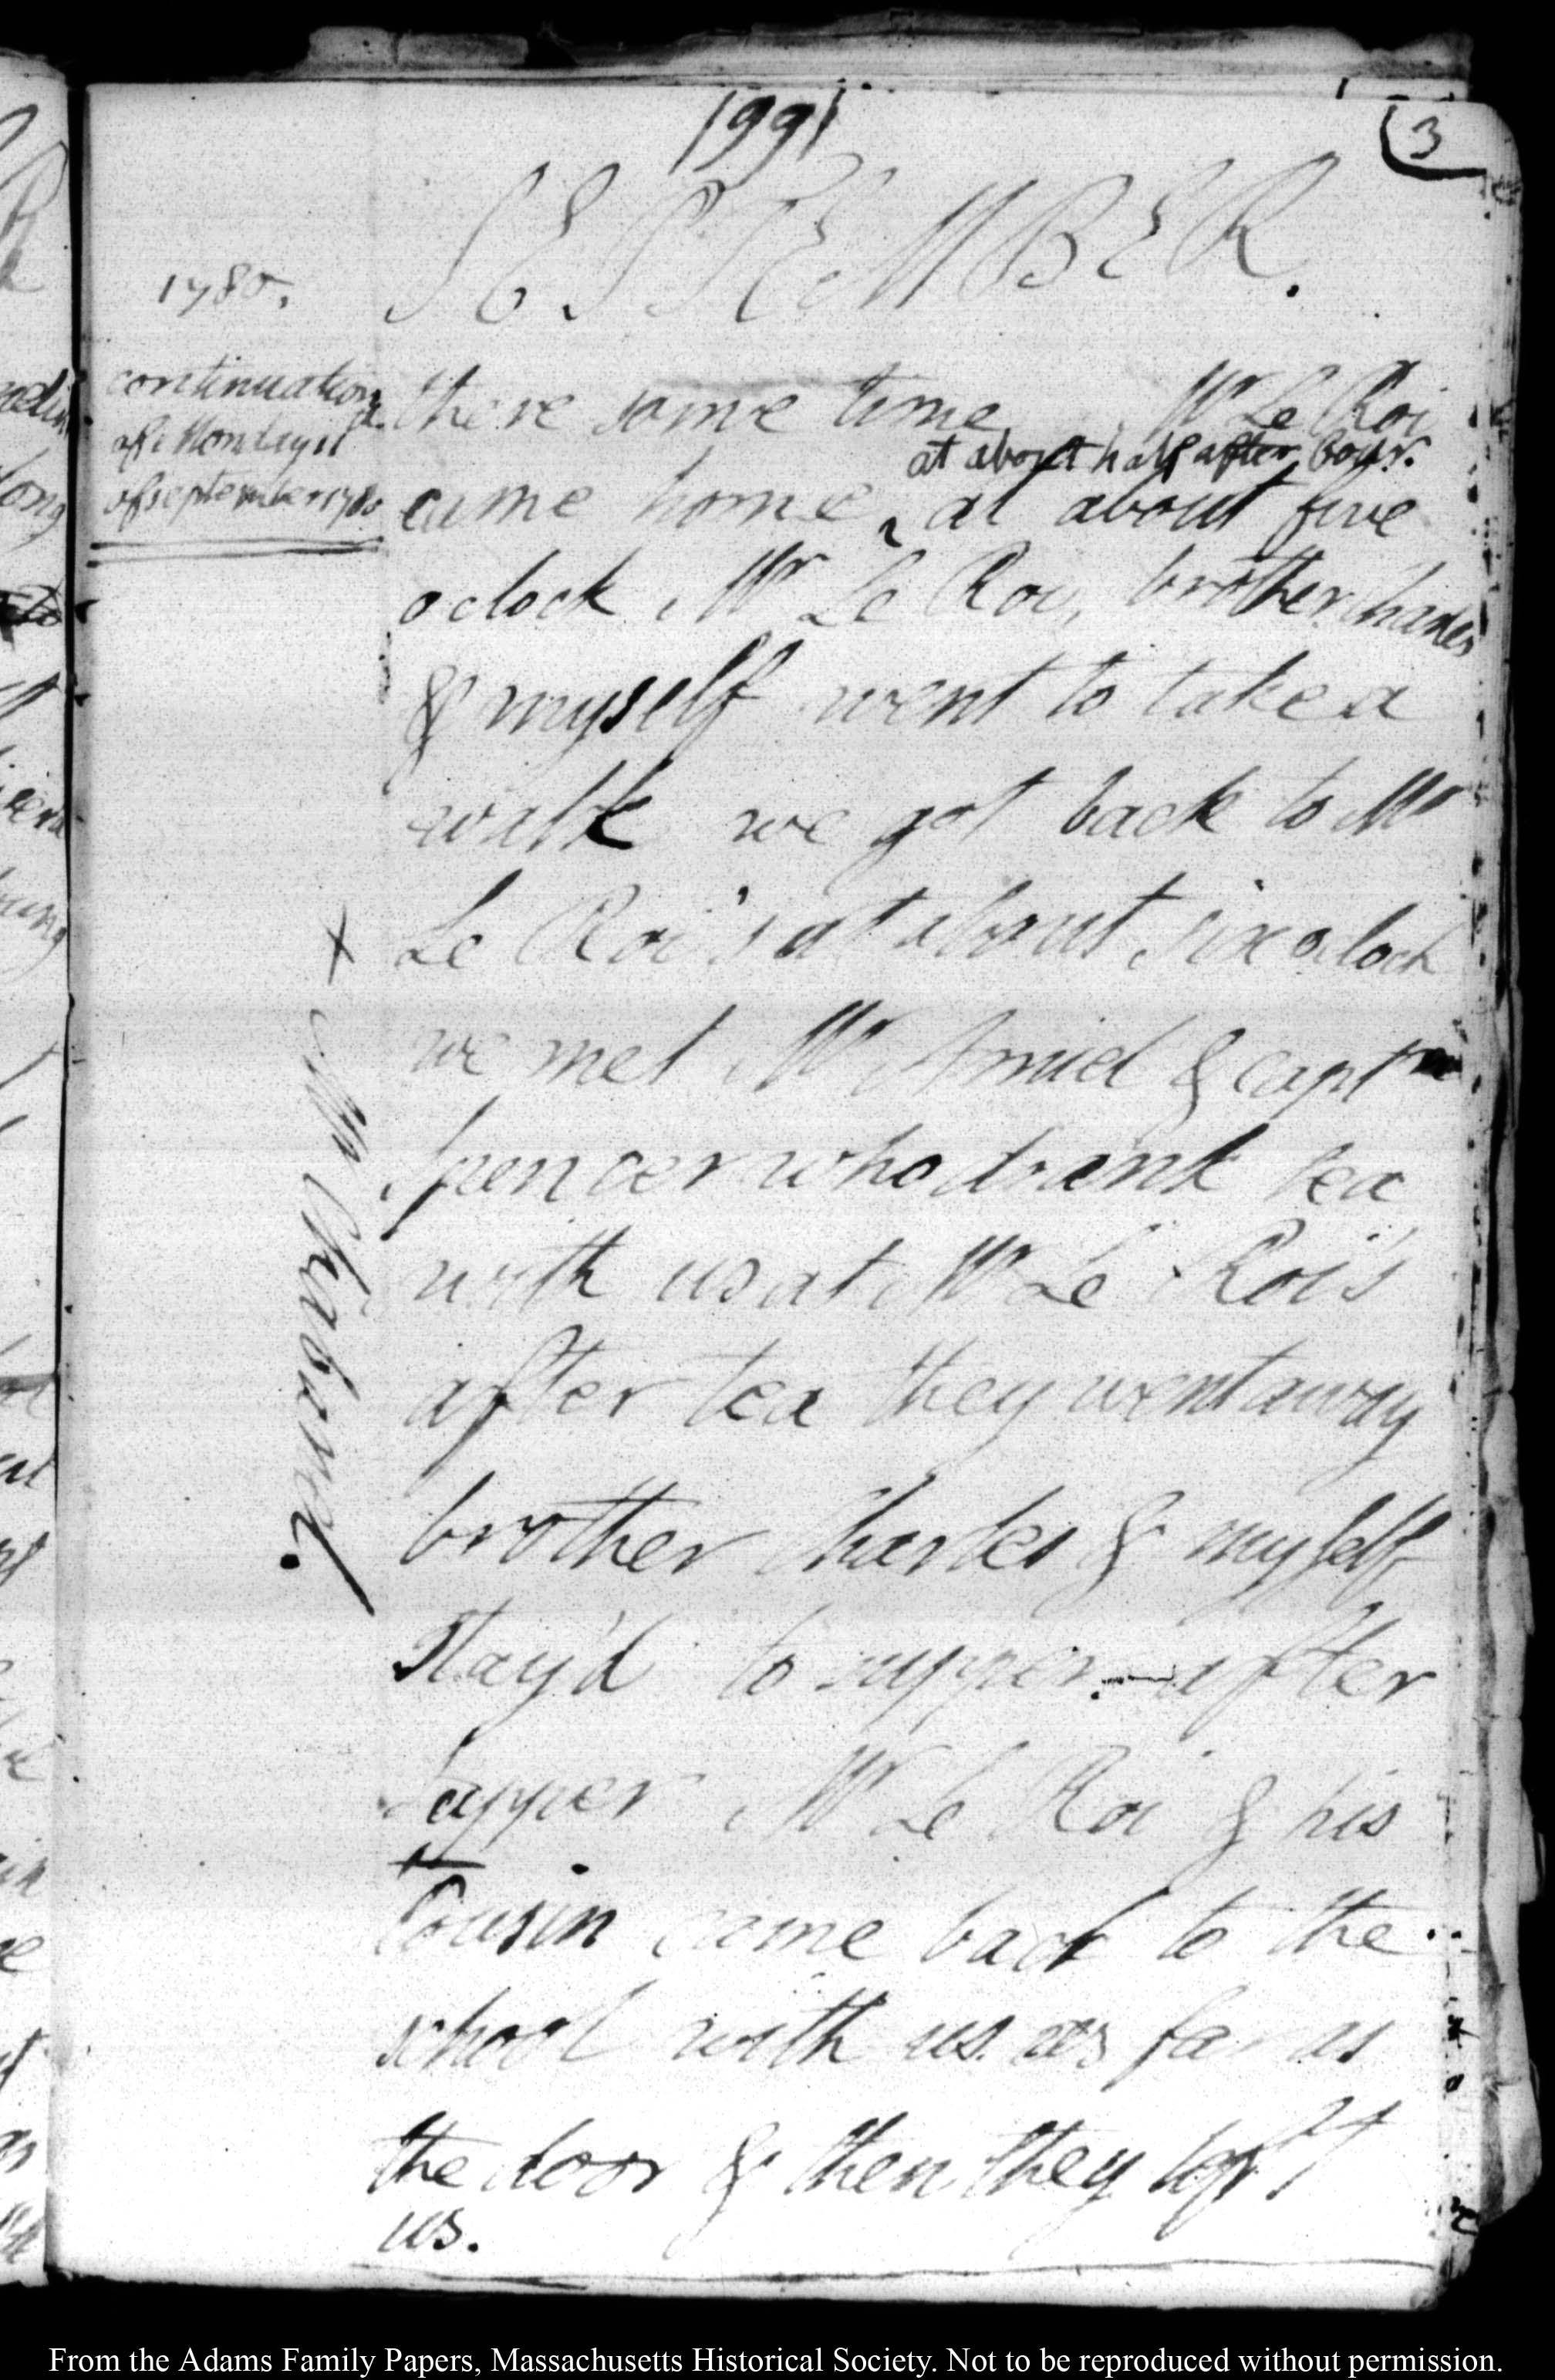 199
3
SEPTEMBER.
1780.
continuation
of Monday 11
of september 1780
there some time Mr Le Roi
at about half after four.
came home, at about five
o clock Mr Le Roi, brother Charles
& myself went to take a
walk we got back to Mr
Le Roi's at about six o clock
we met Mr Amiel & capt
Spencer who drank tea
with us at Mr Le Roi's
after tea they went away
brother Charles & myself
Stay'd to supper. — after
Supper Mr Le Roi & his
+
Cousin came back to the
school with us. as far as
the door & then they left
us.
+ Mr Chabanel.
From the Adams Family Papers, Massachusetts Historical Society. Not to be reproduced without permission.